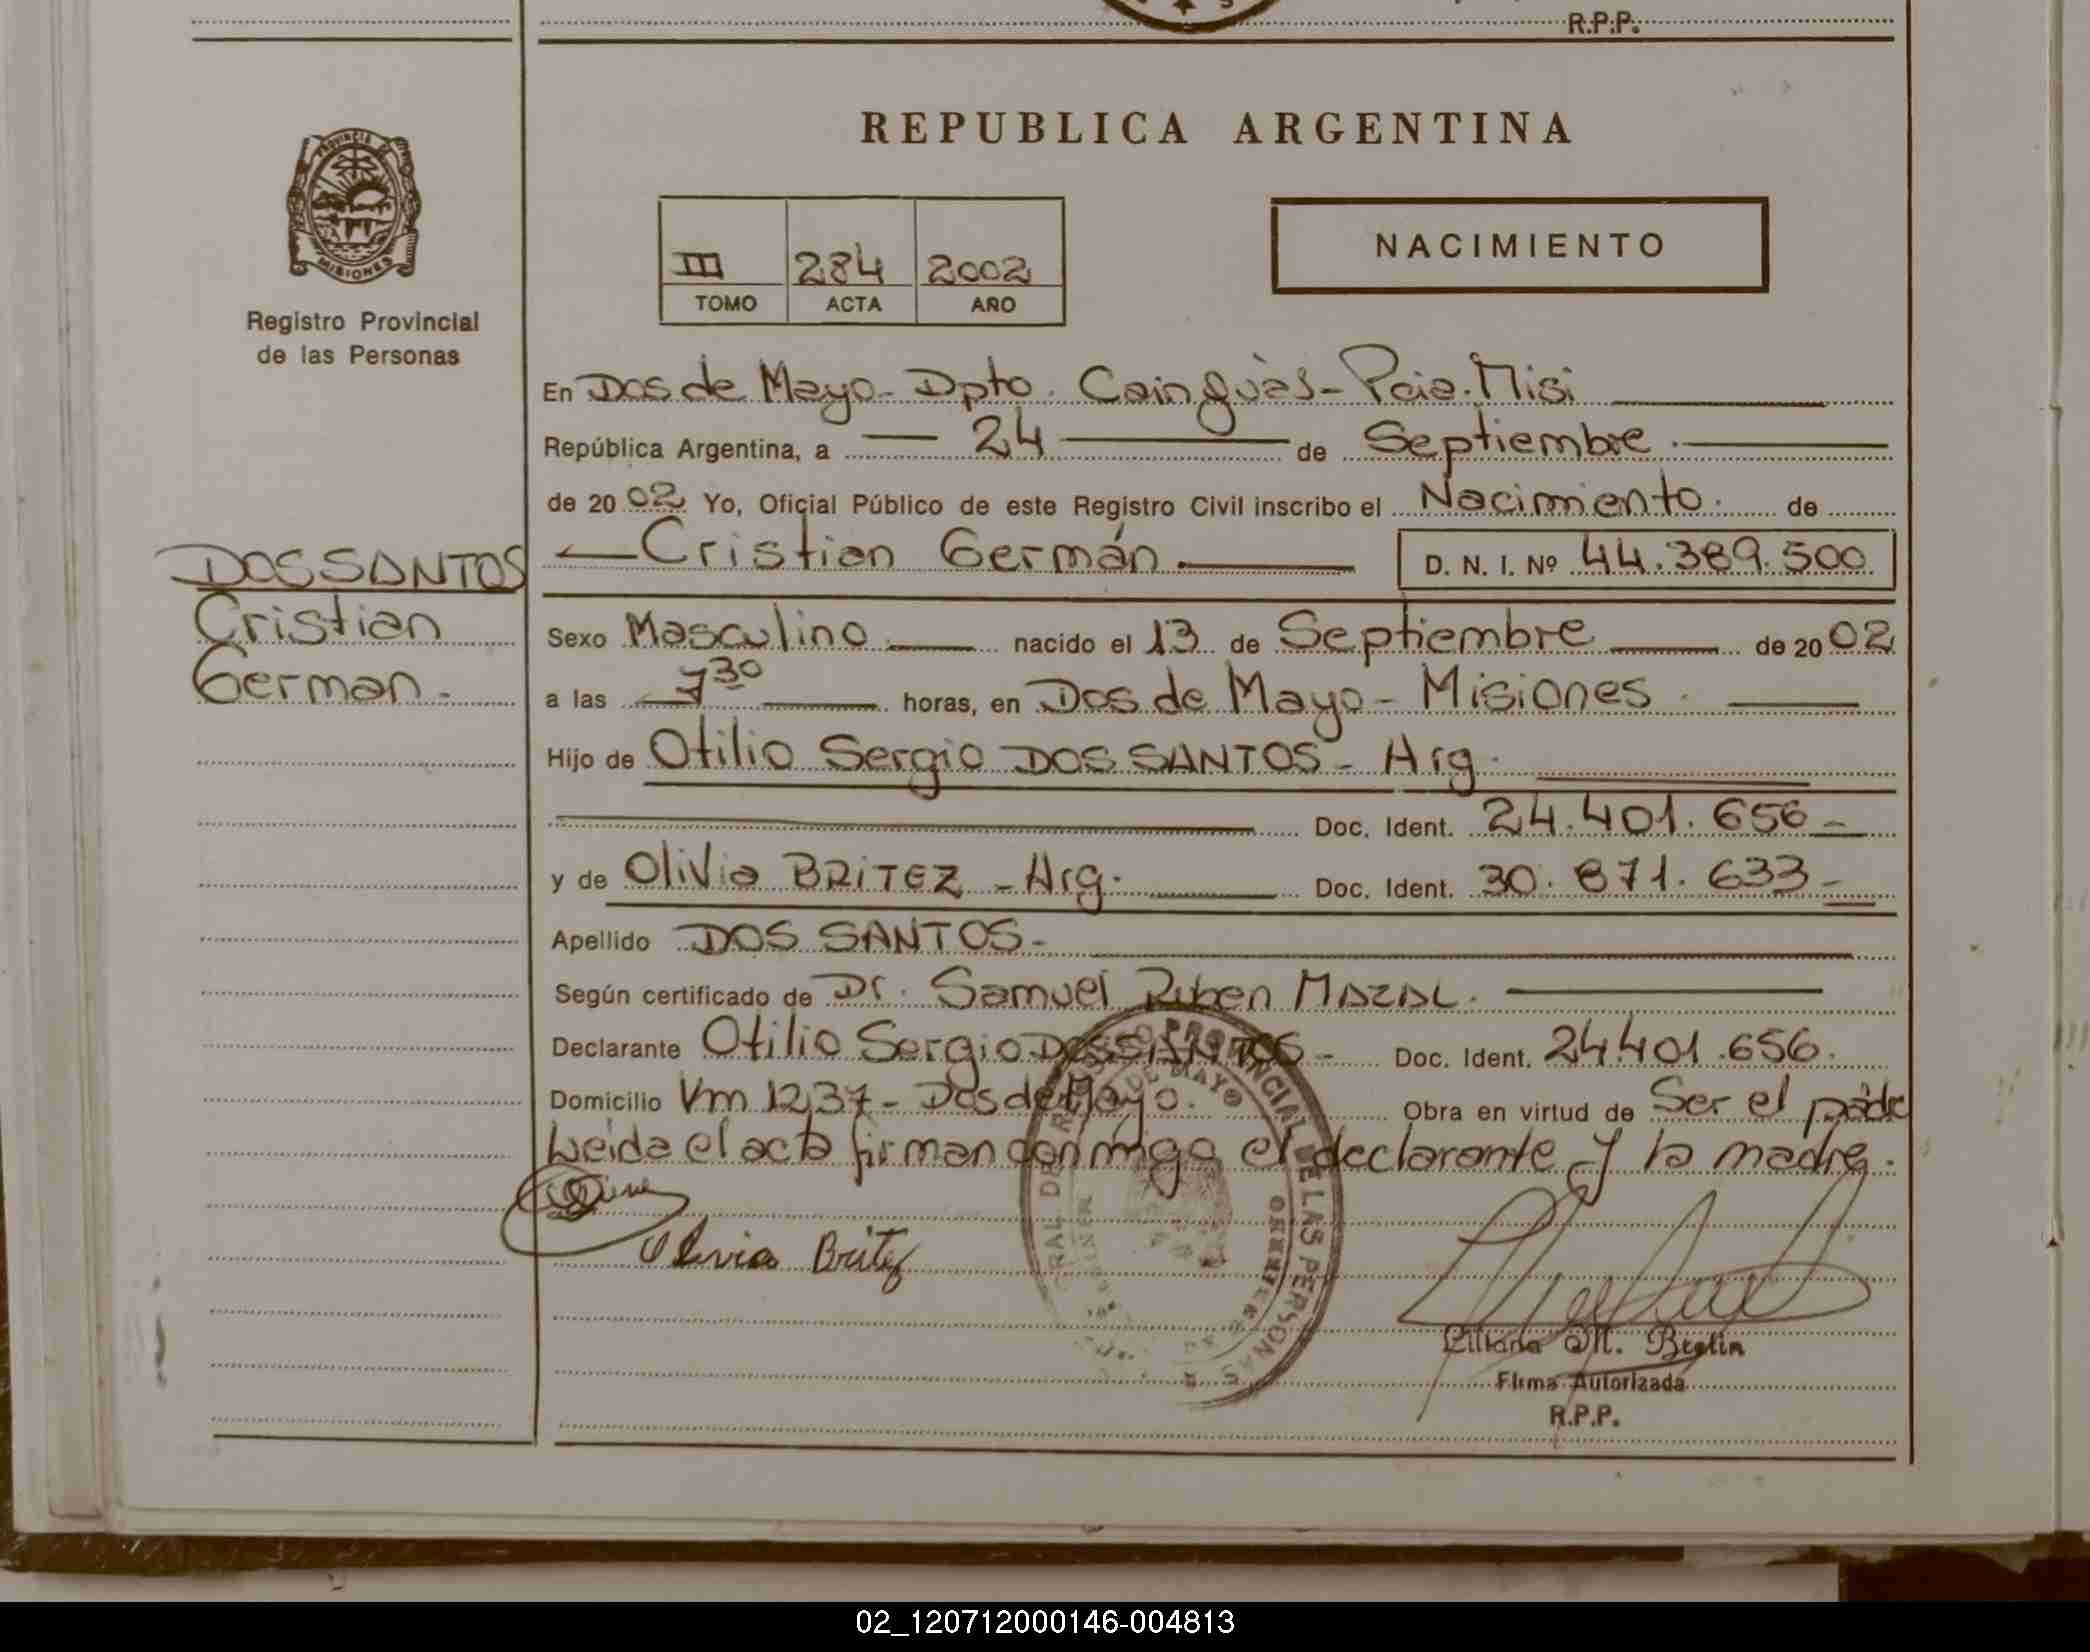 R.P.P.
REPUBLICA ARGENTINA
PROVINCIA DE
MISIONES
Registro Provincial
de las Personas
III 284 2002
TOMO ACTA AÑO
NACIMIENTO
En Dos de Mayo - Dpto. Cainguàs - Pcia. Misi
República Argentina, a 24 de Septiembre.
de 20 02 Yo, Oficial Público de este Registro Civil inscribo el Nacimiento. de
Cristian Germán D. N. I. Nº 44.389.500
DOS SANTOS
Cristian
German.-
Sexo Masculino nacido el 13 de Septiembre de 20 02
a las 7 30 horas, en Dos de Mayo - Misiones.
Hijo de Otilio Sergio DOS SANTOS - Arg.
Doc. Ident. 24.401.656 -
y de Olivia BRITEZ - Arg. Doc. Ident. 30.871.633 -
Apellido DOS SANTOS -
Según certificado de Dr. Samuel Ruben MAZAL.
Declarante Otilio Sergio DOS SANTOS - Doc. Ident. 24.401.656.
Domicilio Km 1237 - Dos de Mayo. Obra en virtud de Ser el padre
Leida el acta firman conmigo el declarante y la madre.
Olivia Britez
PROVINCIAL DE LAS PERSONAS
DE MAYO
Liliana M. Brolin
Firma Autorizada
R.P.P.
02_120712000146-004813